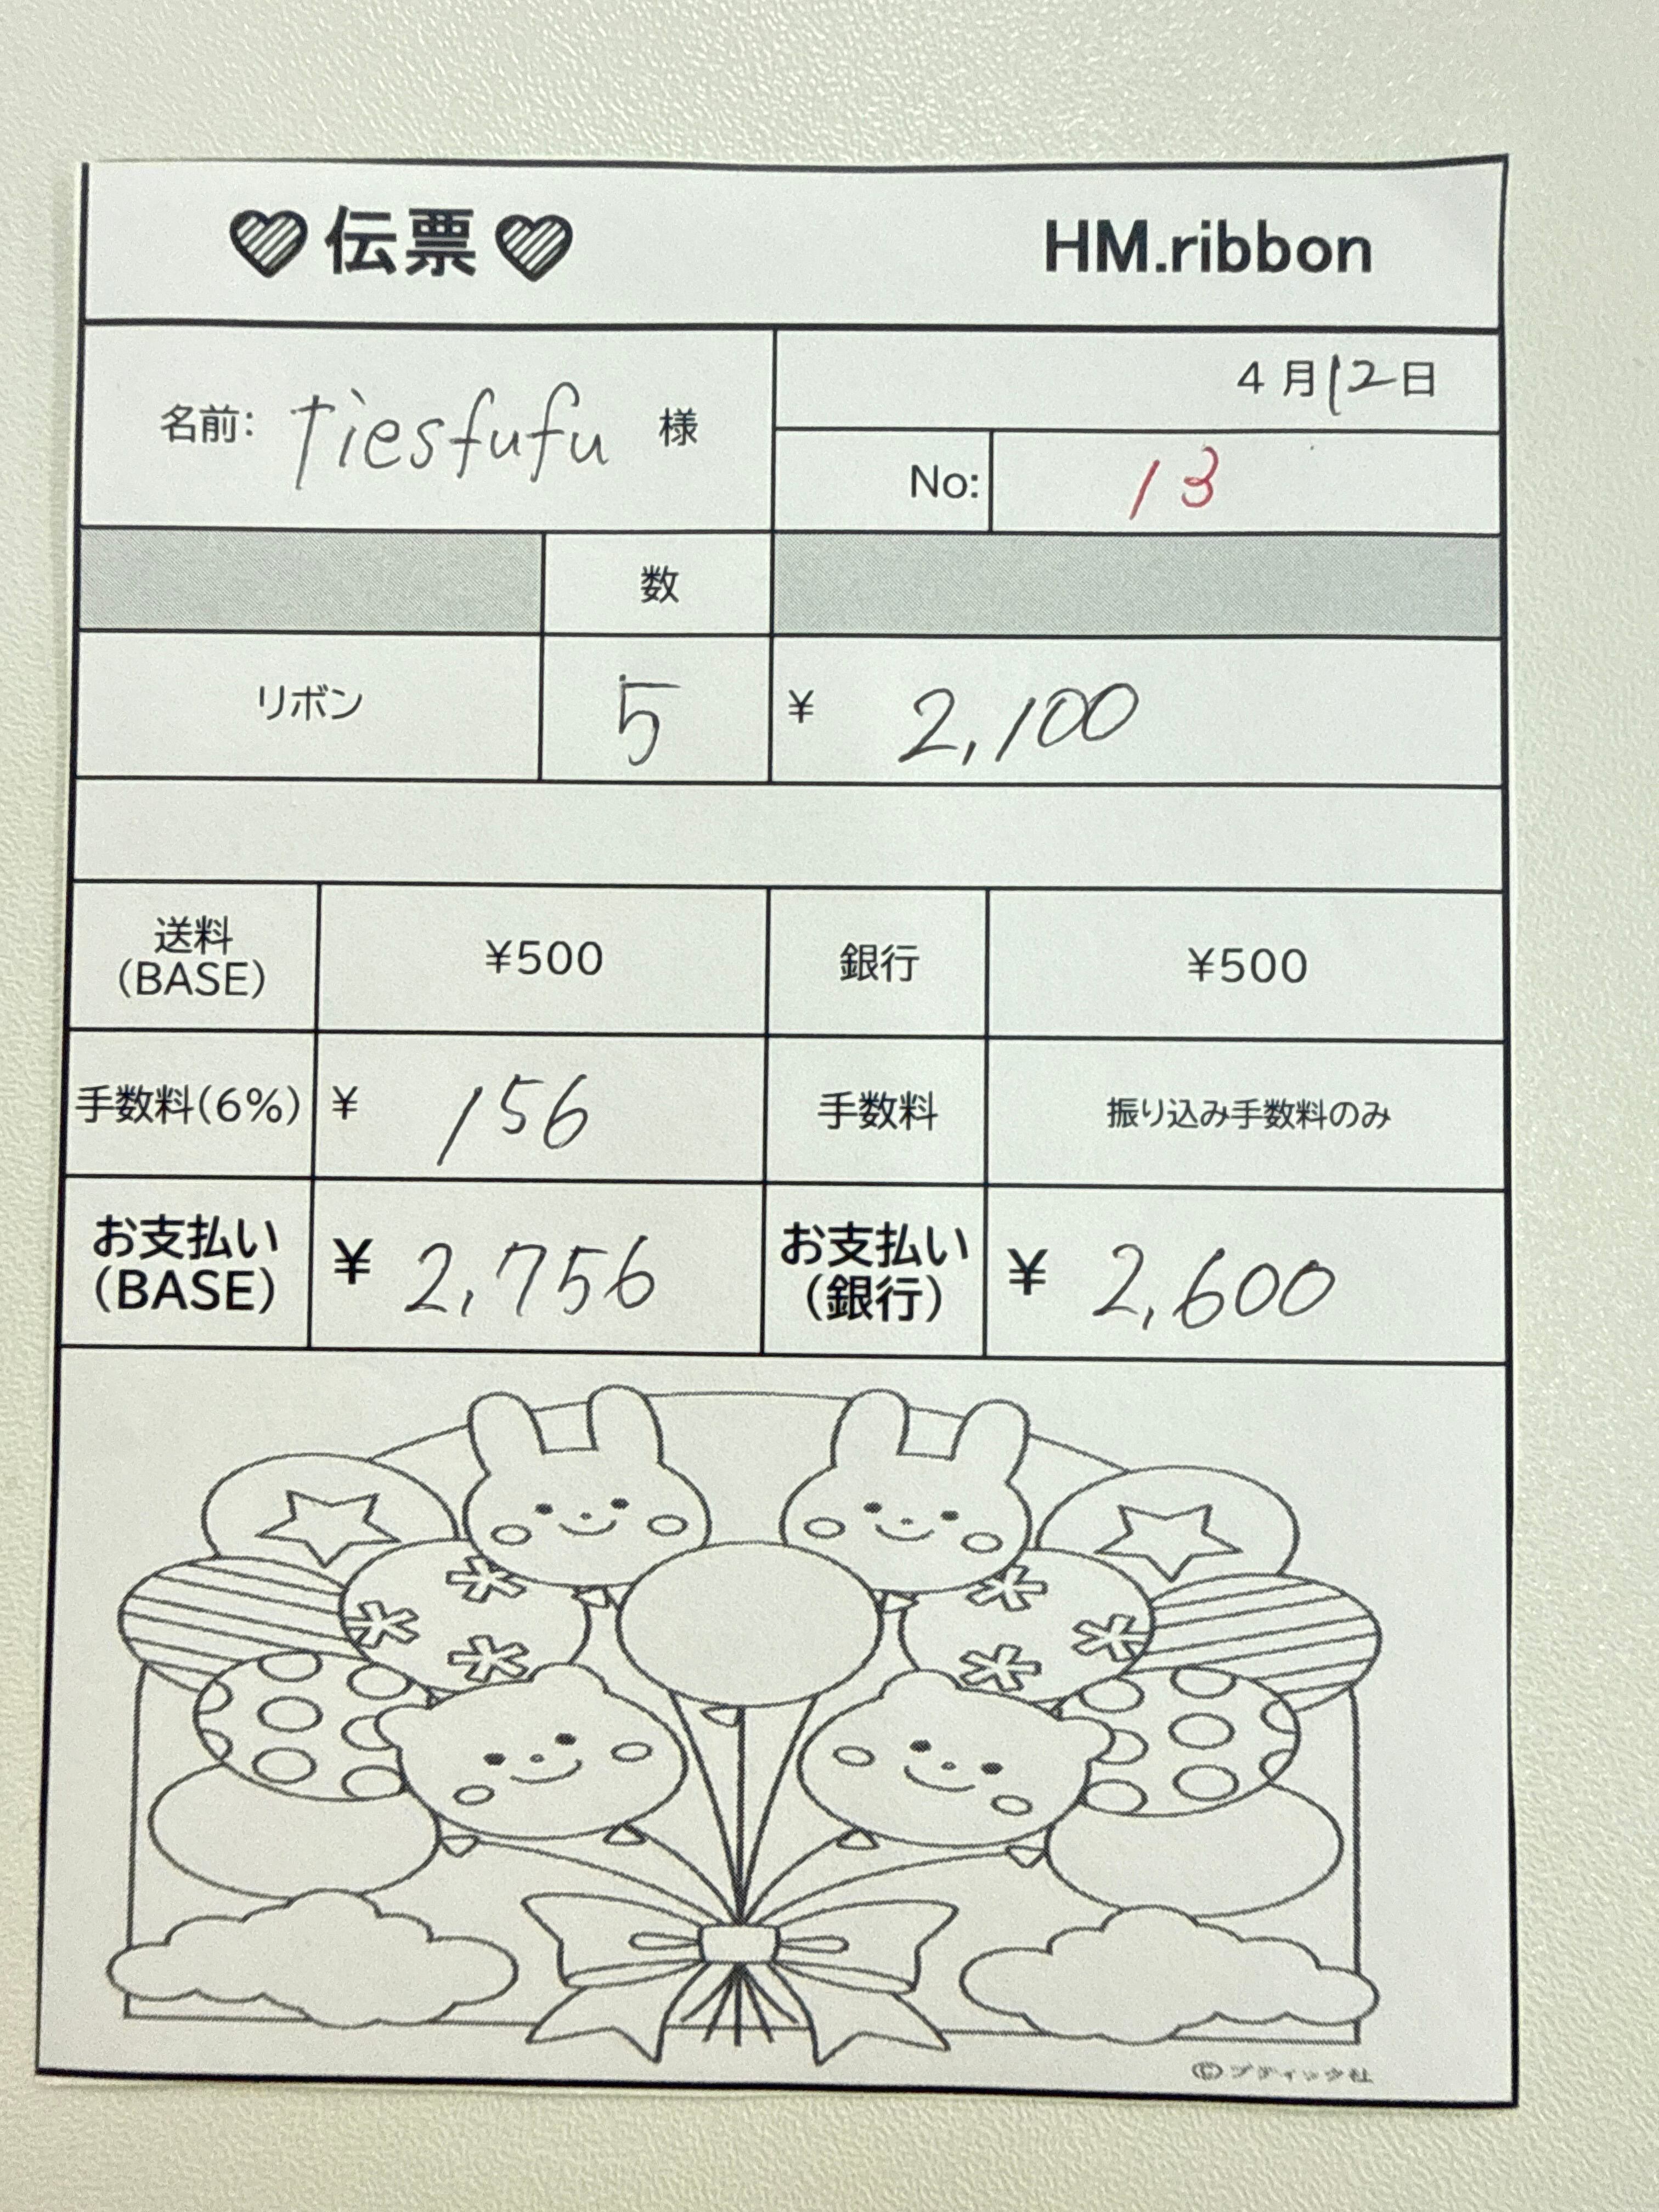 ♡伝票♡ HM.ribbon
名前: tiesfufu 様
4月12日
No: 13
数
リボン 5 ¥ 2,100
送料(BASE) ¥500 銀行 ¥500
手数料(6%) ¥ 156 手数料 振り込み手数料のみ
お支払い(BASE) ¥ 2,756 お支払い(銀行) ¥ 2,600
©ブティック社